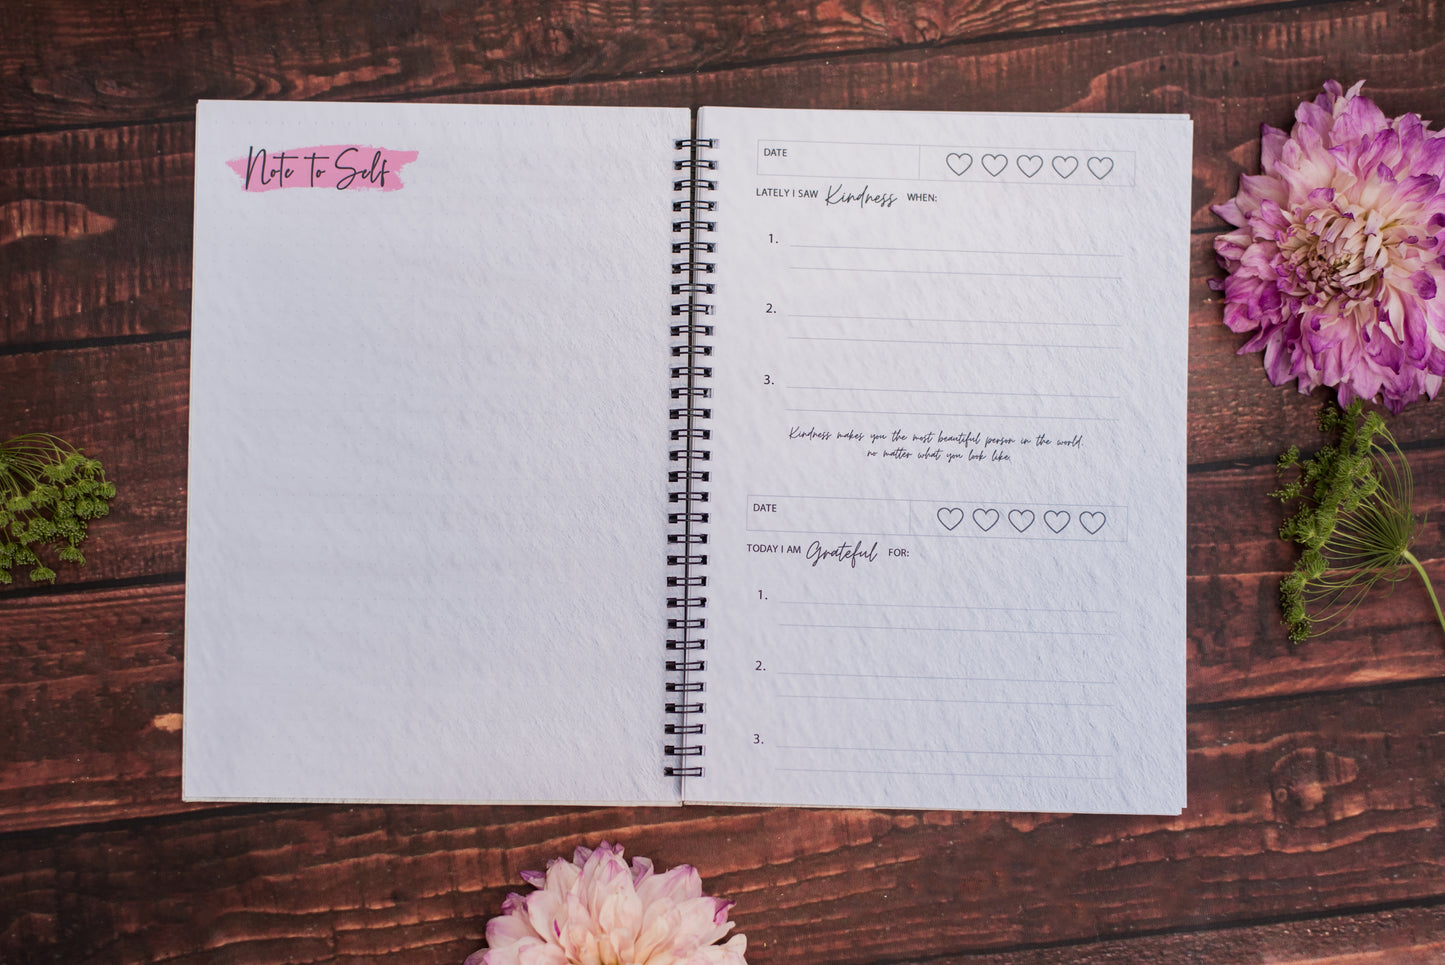 Note to Self
DATE
LATELY I SAW Kindness WHEN:
1.
2.
3.
Kindness makes you the most beautiful person in the world.
no matter what you look like.
DATE
TODAY I AM Grateful FOR:
1.
2.
3.